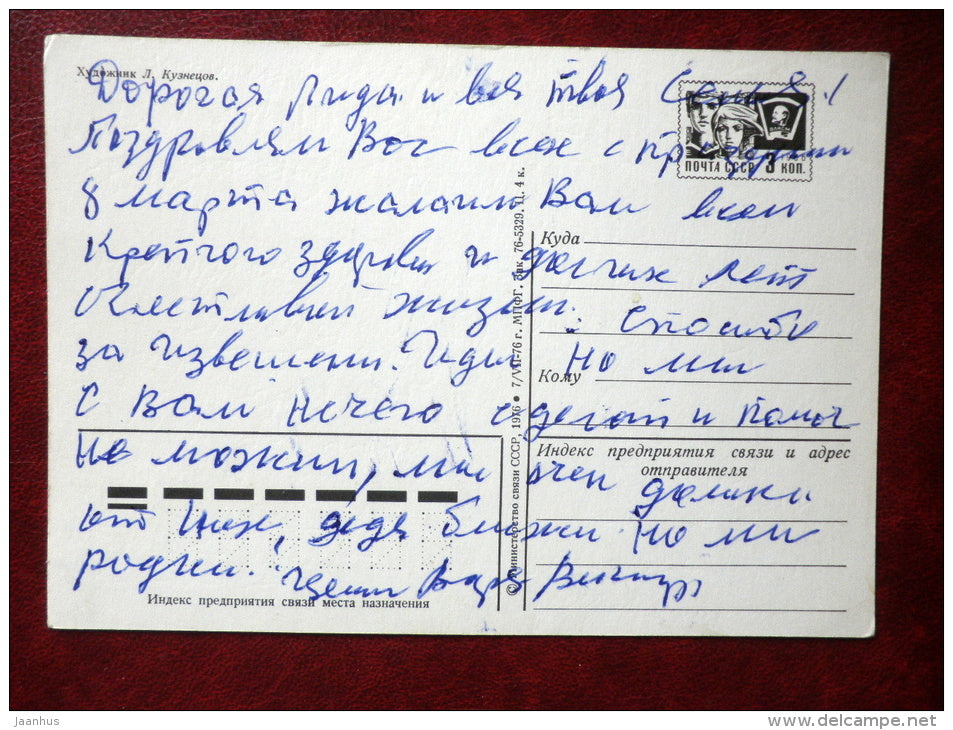 Художник Л. Кузнецов.
Дорогая Лида и вся твоя Семья!
Поздравлям Вас всех с праздником
8 марта жалаим Вам всем
Крепкого здоровия и долгих лет
Счастливый жизни. Спасибо
за извещени. Но ми
С Вам нечего сделат и помоч
Не можим, ми очен далики
от них, дядя ближи Но ми
родки. Целим Варя Виктор
ПОЧТА СССР 3 КОП.
Куда
Кому
Индекс предприятия связи и адрес
отправителя
Индекс предприятия связи места назначения
© Министерство связи СССР, 1976 • 7/VII-76 г. МПФГ. Зак. 76-5329. Ц. 4 к.
jaanhus
http://www.delcampe.net